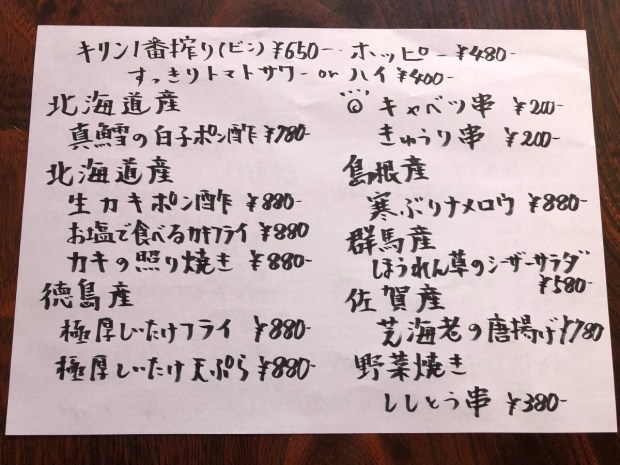 キリン1番搾り(ビン)¥650- ホッピー¥480-
すっきりトマトサワー or ハイ ¥400-
北海道産
真鱈の白子ポン酢 ¥780-
北海道産
生カキポン酢 ¥880-
お塩で食べるカキフライ ¥880
カキの照り焼き ¥880-
徳島産
極厚しいたけフライ ¥880-
極厚しいたけ天ぷら ¥880-
◎ キャベツ串 ¥200-
きゅうり串 ¥200-
島根産
寒ぶりナメロウ ¥880-
群馬産
ほうれん草のシーザーサラダ
¥580-
佐賀産
芝海老の唐揚げ ¥780
野菜焼き
ししとう串 ¥380-